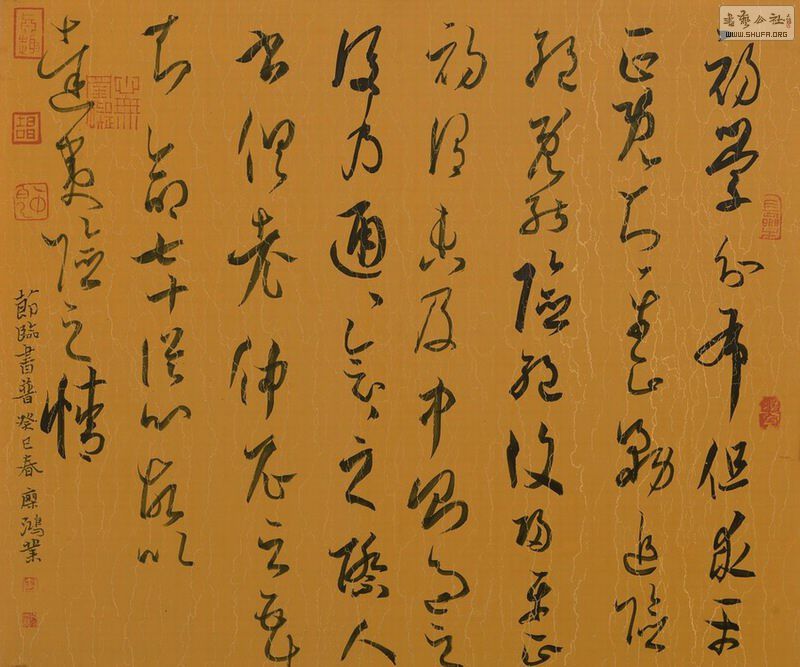 書藝公社
WWW.SHUFA.ORG
初學分布但求平
正既知平正務追險
絕既能險絕復歸平正
初謂未及中則過之
後乃通〻會〻之際人
書俱老仲尼云五十
知命七十從心故以
達夷險之情
節臨書普癸巳春 鴻業